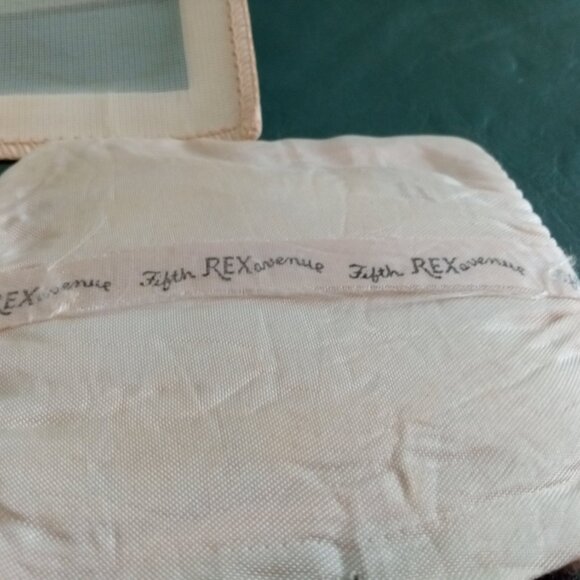 REXavenue Fifth REXavenue Fifth REXavenue